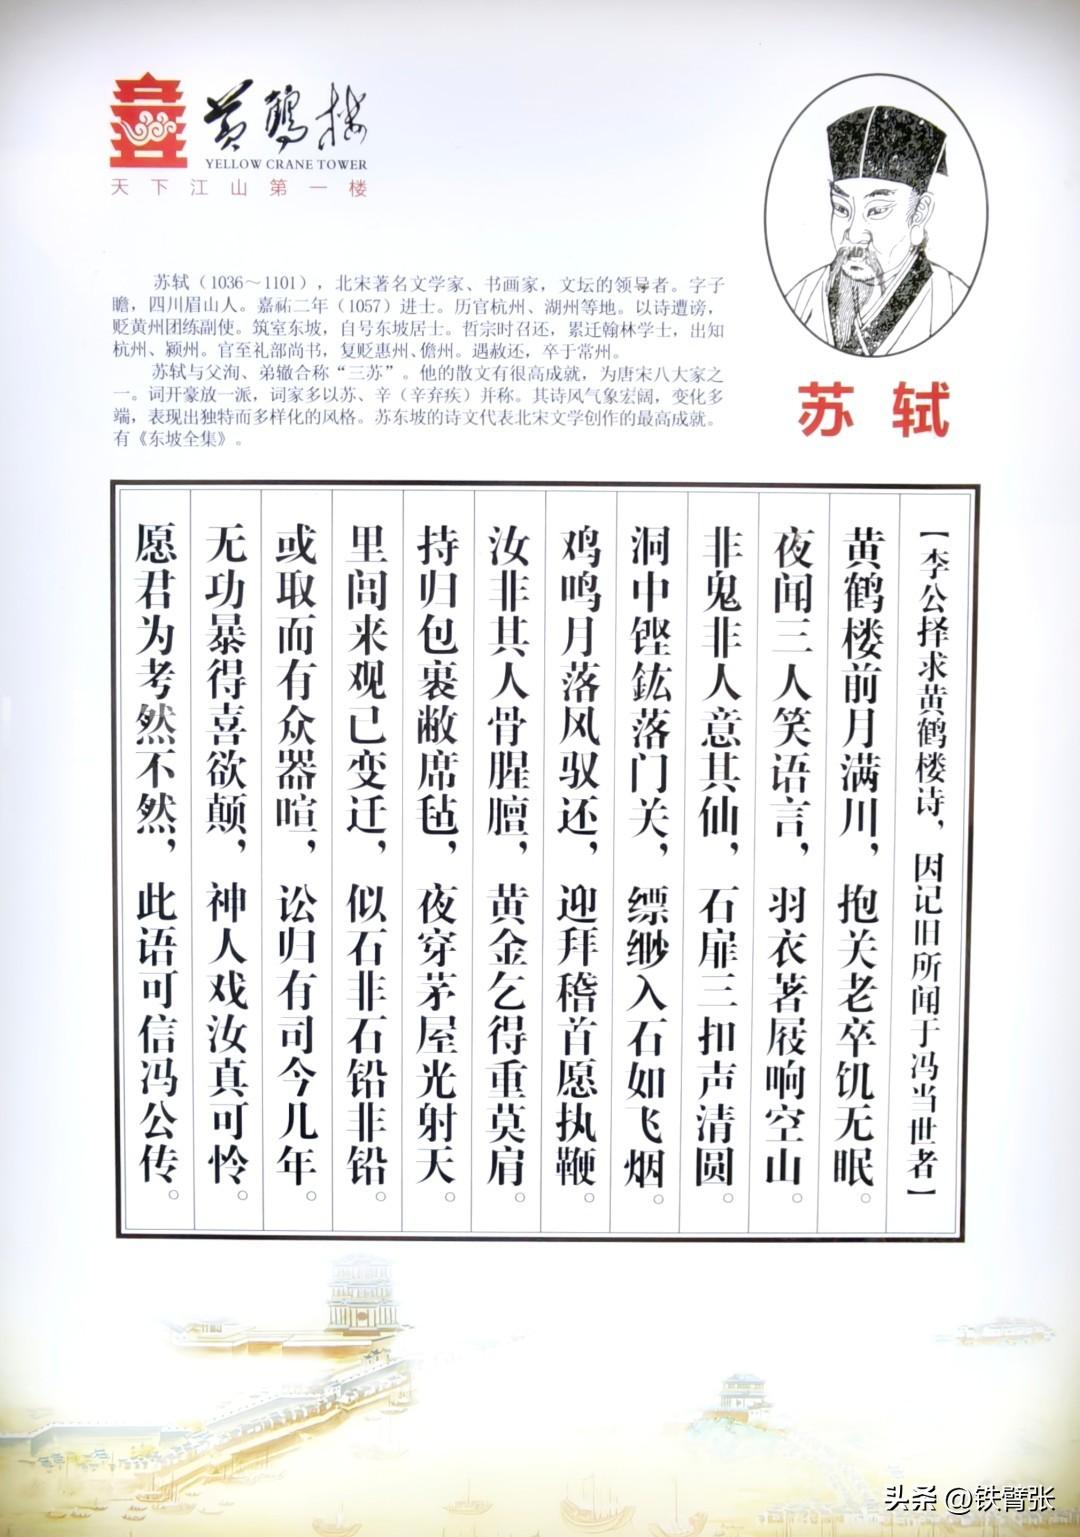 黄鹤楼
YELLOW CRANE TOWER
天下江山第一楼
苏轼（1036～1101），北宋著名文学家、书画家，文坛的领导者。字子
瞻，四川眉山人。嘉祐二年（1057）进士。历官杭州、湖州等地。以诗遭谤，
贬黄州团练副使。筑室东坡，自号东坡居士。哲宗时召还，累迁翰林学士，出知
杭州、颍州。官至礼部尚书，复贬惠州、儋州。遇赦还，卒于常州。
苏轼与父洵、弟辙合称“三苏”。他的散文有很高成就，为唐宋八大家之
一。词开豪放一派，词家多以苏、辛（辛弃疾）并称。其诗风气象宏阔，变化多
端，表现出独特而多样化的风格。苏东坡的诗文代表北宋文学创作的最高成就。
有《东坡全集》。
苏轼
【李公择求黄鹤楼诗，因记旧所闻于冯当世者】
黄鹤楼前月满川，抱关老卒饥无眠。
夜闻三人笑语言，羽衣著屐响空山。
非鬼非人意其仙，石扉三扣声清圆。
洞中铿鈜落门关，缥缈入石如飞烟。
鸡鸣月落风驭还，迎拜稽首愿执鞭。
汝非其人骨腥膻，黄金乞得重莫肩。
持归包裹敝席毡，夜穿茅屋光射天。
里闾来观已变迁，似石非石铅非铅。
或取而有众器喧，讼归有司今几年。
无功暴得喜欲颠，神人戏汝真可怜。
愿君为考然不然，此语可信冯公传。
头条 @铁臂张